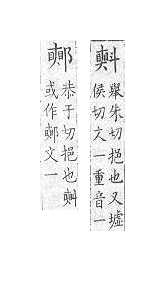 㪺
舉朱切挹也又墟
侯切文一重音一
恭于切挹也㪺
或作文一